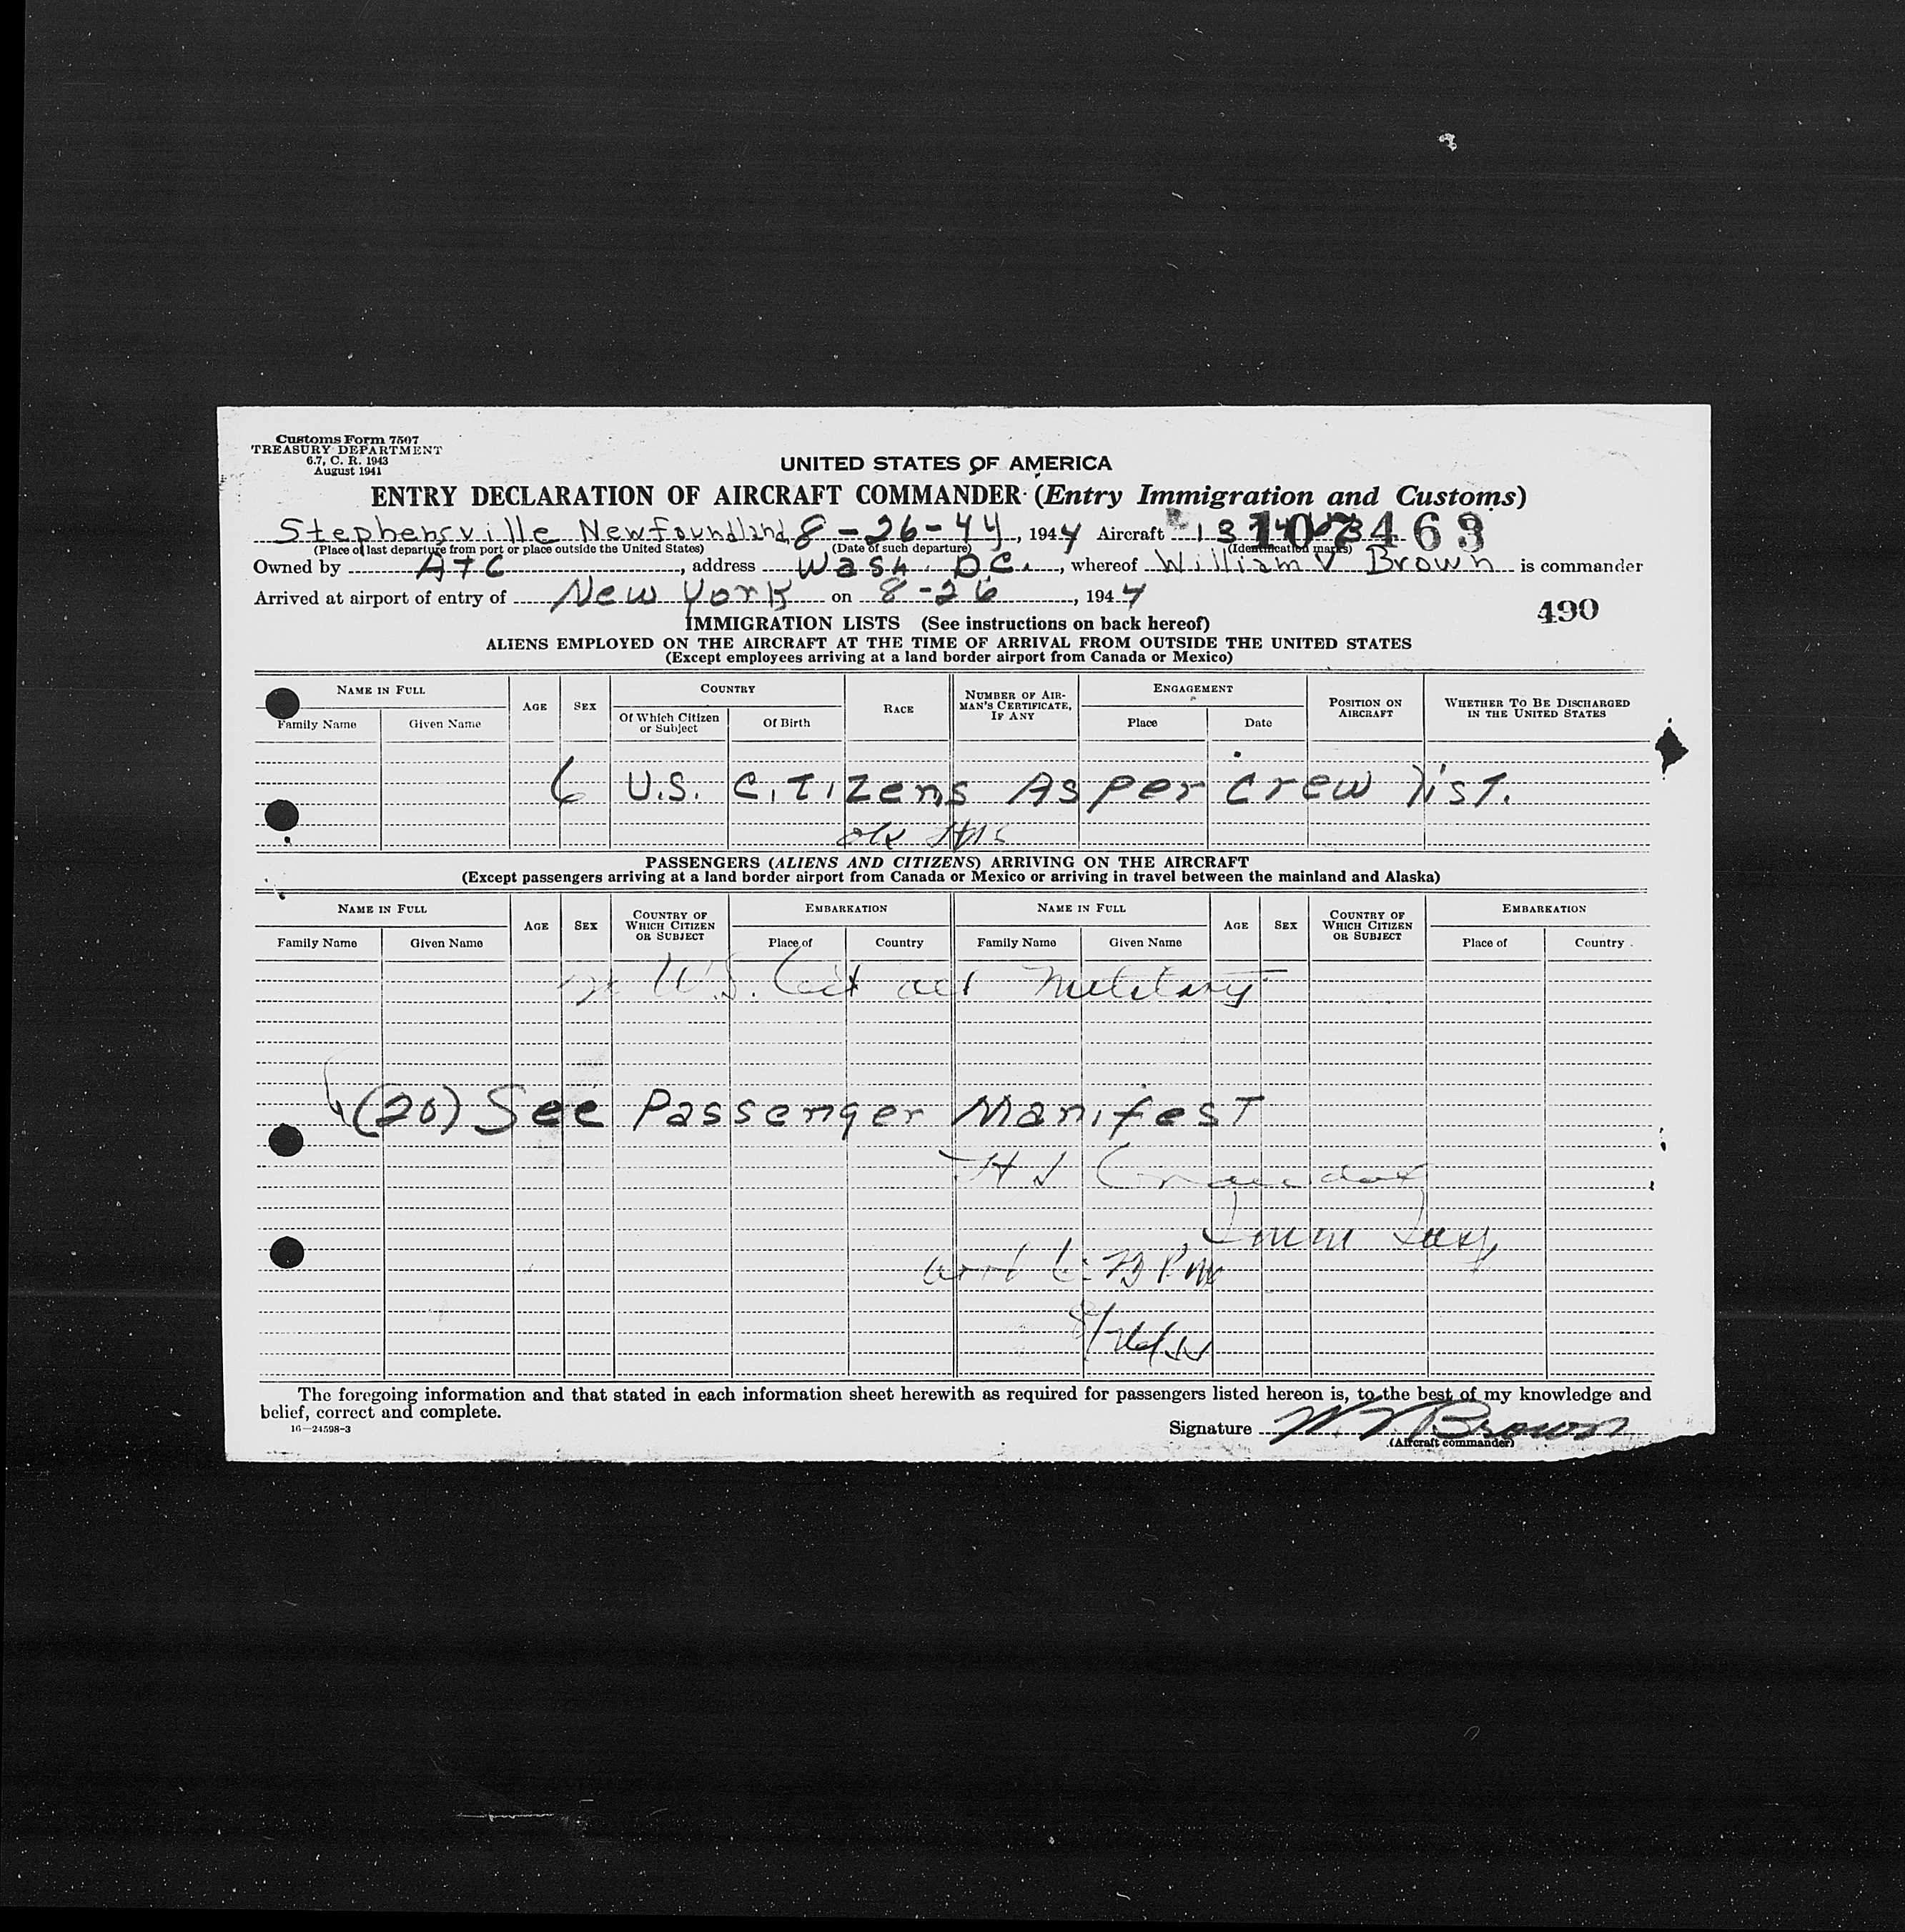 Customs Form 7507
TREASURY DEPARTMENT
6.7, C. R. 1943
August 1941
UNITED STATES OF AMERICA
ENTRY DECLARATION OF AIRCRAFT COMMANDER (Entry Immigration and Customs)
Stephensville Newfoundland, 8-26-44, 1944 Aircraft 107463
(Place of last departure from port or place outside the United States) (Date of such departure) (Identification marks)
Owned by ATC, address Wash. DC., whereof William V Brown is commander
Arrived at airport of entry of New York on 8-26, 1944
490
IMMIGRATION LISTS (See instructions on back hereof)
ALIENS EMPLOYED ON THE AIRCRAFT AT THE TIME OF ARRIVAL FROM OUTSIDE THE UNITED STATES
(Except employees arriving at a land border airport from Canada or Mexico)
NAME IN FULL AGE SEX COUNTRY RACE NUMBER OF AIRMAN'S CERTIFICATE, IF ANY ENGAGEMENT POSITION ON AIRCRAFT WHETHER TO BE DISCHARGED IN THE UNITED STATES
Family Name Given Name Of Which Citizen or Subject Of Birth Place Date
6 U.S. Citizens As per crew list.
ok
PASSENGERS (ALIENS AND CITIZENS) ARRIVING ON THE AIRCRAFT
(Except passengers arriving at a land border airport from Canada or Mexico or arriving in travel between the mainland and Alaska)
NAME IN FULL AGE SEX COUNTRY OF WHICH CITIZEN OR SUBJECT EMBARKATION NAME IN FULL AGE SEX COUNTRY OF WHICH CITIZEN OR SUBJECT EMBARKATION
Family Name Given Name Place of Country Family Name Given Name Place of Country
U.S. Cit all Military
(20) See Passenger Manifest
Imm Insp
PM
The foregoing information and that stated in each information sheet herewith as required for passengers listed hereon is, to the best of my knowledge and
belief, correct and complete.
16—24598-3
Signature W. V Brown
(Aircraft commander)